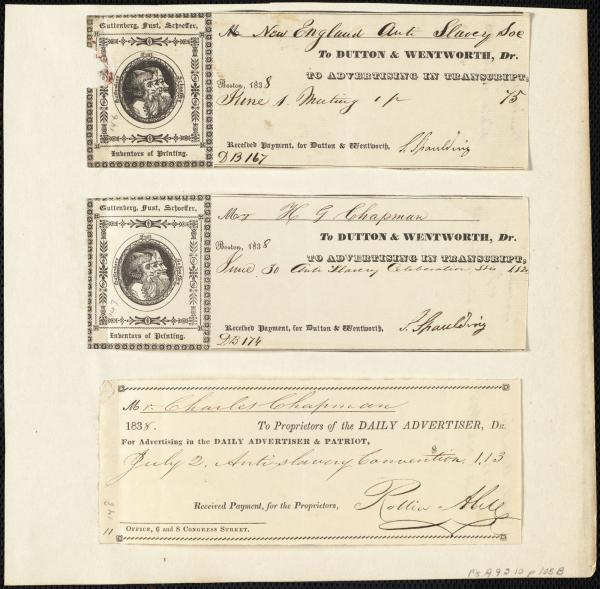 Guttenberg, Fust, Schoeffer,
Inventors of Printing.
Mr New England Anti Slavery Soc
To DUTTON & WENTWORTH, Dr.
TO ADVERTISING IN TRANSCRIPT,
Boston, 1838
June 1. Meeting 75
Received Payment, for Dutton & Wentworth,
S. Spaulding
DB 167
Guttenberg, Fust, Schoeffer,
Inventors of Printing.
Mr H G Chapman
To DUTTON & WENTWORTH, Dr.
Boston, 1838
TO ADVERTISING IN TRANSCRIPT,
June 30 Anti Slavery Celebration
Received Payment, for Dutton & Wentworth,
S. Spaulding
DB 174
Mr. Charles Chapman
1838. To Proprietors of the DAILY ADVERTISER, DR.
For Advertising in the DAILY ADVERTISER & PATRIOT,
July 2. Anti slavery Convention $ 1,13
Received Payment, for the Proprietors,
Rollin Abell
OFFICE, 6 and 8 CONGRESS STREET.
Ms A.9.2.10 p 108B